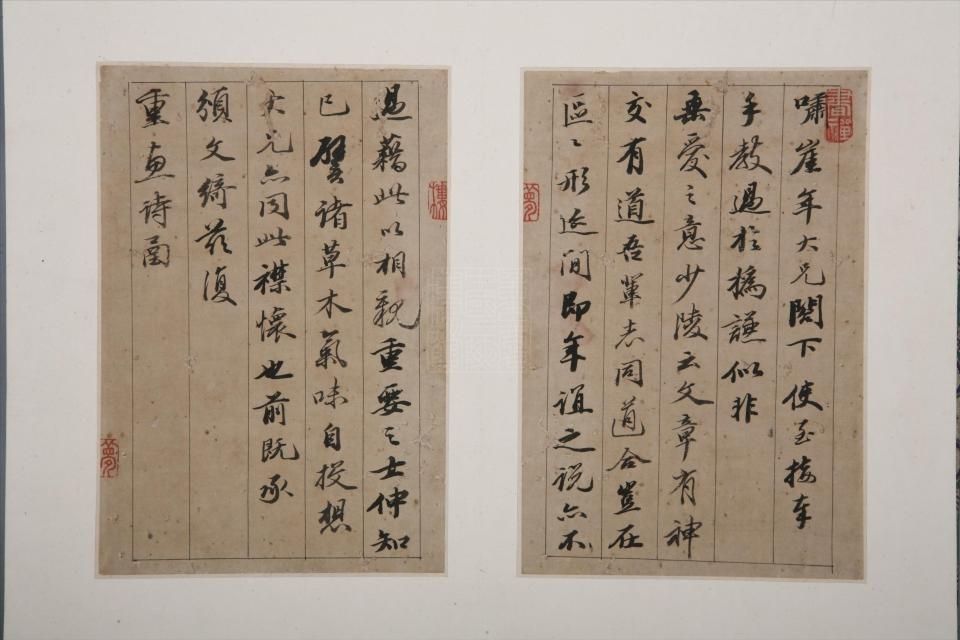 嘯崖年大兄閣下使至接奉
手教過於撝謙似非
垂愛之意少陵云文章有神
交有道吾輩志同道合豈在
區々形迹間即年誼之說亦不
過藉此以相親重要之士伸知
己譬諸草木氣味自投想
大兄亦同此襟懷也前既承
頒文綺茲復
重惠詩函